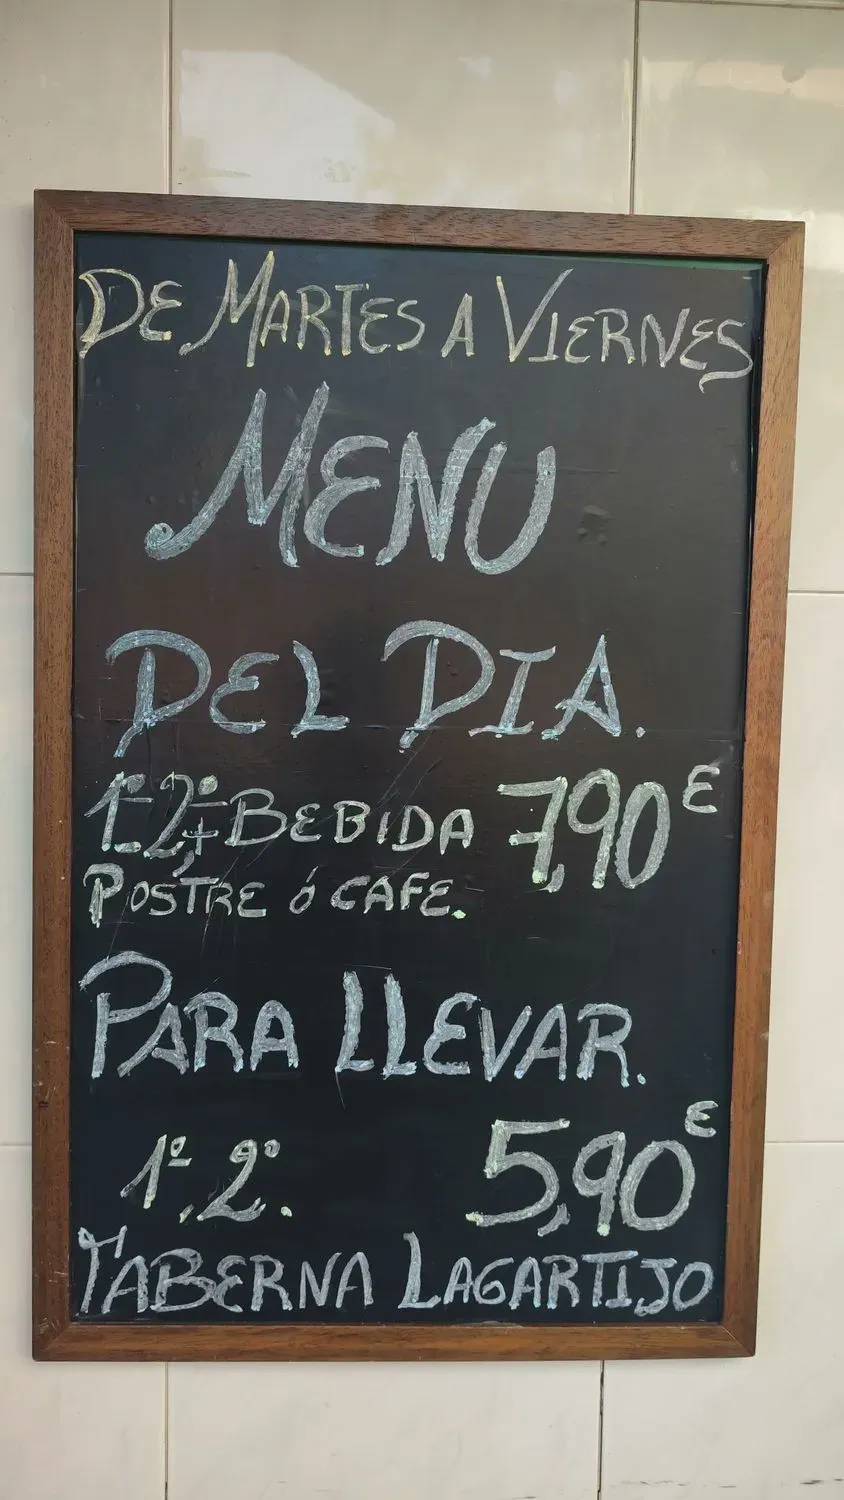 DE MARTES A VIERNES
MENU
DEL DIA.
1º 2º, + BEBIDA 7,90€
POSTRE ó CAFE.
PARA LLEVAR.
1º, 2º. 5,90€
TABERNA LAGARTIJO